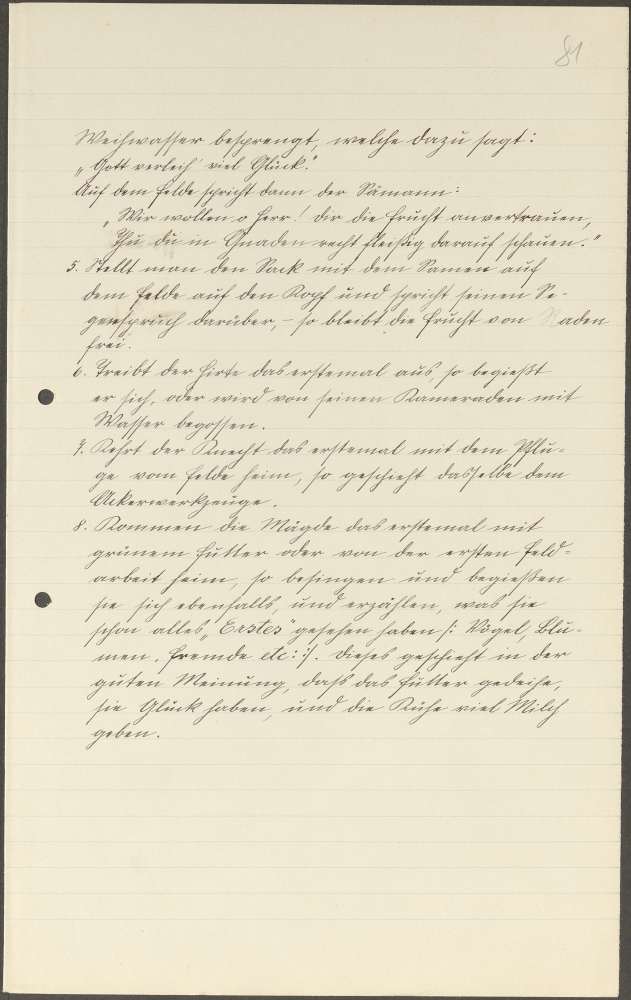 81
Weihwasser besprengt, welche dazu sagt:
„Gott verleih' viel Glück."
Auf dem Felde spricht dann der Sämann:
„Wir wollen o Herr! dir die Frucht anvertrauen,
Thu du in Gnaden recht fleißig darauf schauen."
5. Stellt man den Sack mit dem Samen auf
dem Felde auf den Kopf und spricht seinen Se-
gensspruch darüber, – so bleibt die Frucht von aden
frei.
6. Treibt der Hirte das erstemal aus, so begießt
er sich, oder wird von seinen Kameraden mit
Wasser begossen.
7. Kehrt der Knecht das erstemal mit dem Pflu-
ge vom Felde heim, so geschieht dasselbe dem
Ackerwerkzeuge.
8. Kommen die Mägde das erstemal mit
grünem Futter oder von der ersten Feld-
arbeit heim, so besingen und begießen
sie sich ebenfalls, und erzählen, was sie
schon alles „Erstes" gesehen haben /: Vögel, Blu-
men, Fremde etc: :/. Dieses geschieht in der
guten Meinung, daß das Futter gedeihe,
sie Glück haben, und die Kühe viel Milch
geben.